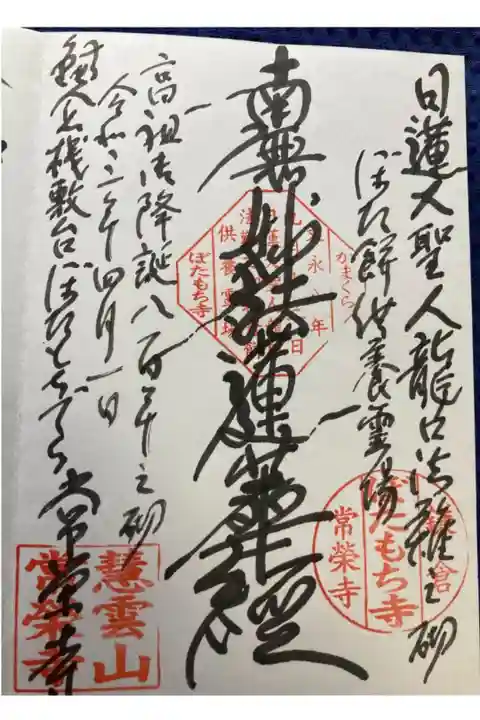 日蓮大聖人龍口法難之砌
ぼた餅供養霊場
南無妙法蓮華経
高祖御降誕八百年之砌
令和三年四月一日
鎌倉棧敷台ぼたもちでら 常栄寺
かまくら
文永八年
供養霊場
ぼたもち寺
鎌倉
ぼたもち寺
常榮寺
慧雲山
常榮寺